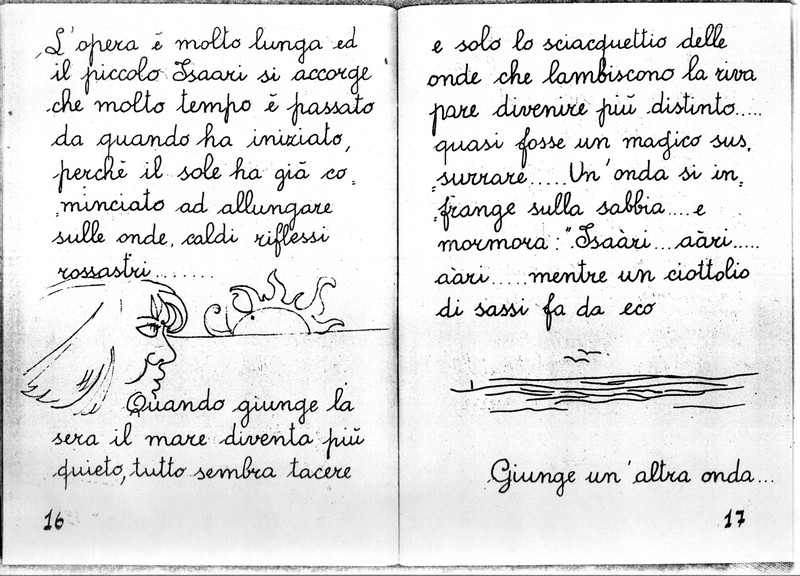 L'opera è molto lunga ed
il piccolo Isaari si accorge
che molto tempo è passato
da quando ha iniziato,
perchè il sole ha già co=
=minciato ad allungare
sulle onde, caldi riflessi
rossastri........
Quando giunge la
sera il mare diventa più
quieto, tutto sembra tacere
16
e solo lo sciacquettio delle
onde che lambiscono la riva
pare divenire più distinto.....
quasi fosse un magico sus=
=surrare.....Un'onda si in=
=frange sulla sabbia....e
mormora: "Isaàri....aàri.....
aàri.....mentre un ciottolio
di sassi fa da eco
Giunge un'altra onda...
17